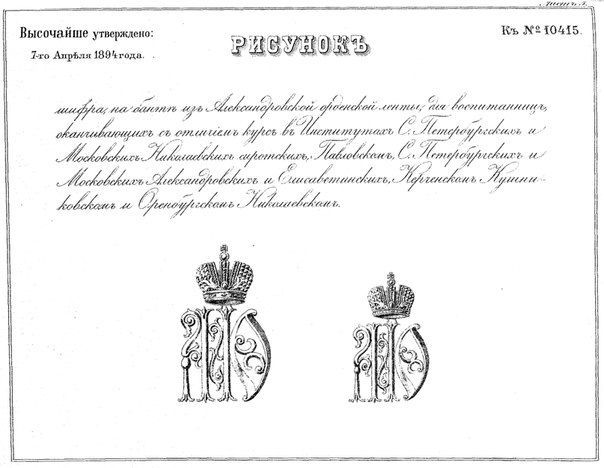 Листъ 1.
Высочайше утверждено:
7-го Апрѣля 1894 года.
РИСУНОКЪ
Къ № 10415.
шифра, на бантѣ изъ Александровской орденской ленты, для воспитанницъ,
оканчивающихъ съ отличіемъ курсъ въ Институтахъ С. Петербургскихъ и
Московскихъ Николаевскихъ сиротскихъ, Павловскомъ, С. Петербургскихъ и
Московскихъ Александровскихъ и Елисаветинскихъ, Керченскомъ Кушни-
ковскомъ и Оренбургскомъ Николаевскомъ.